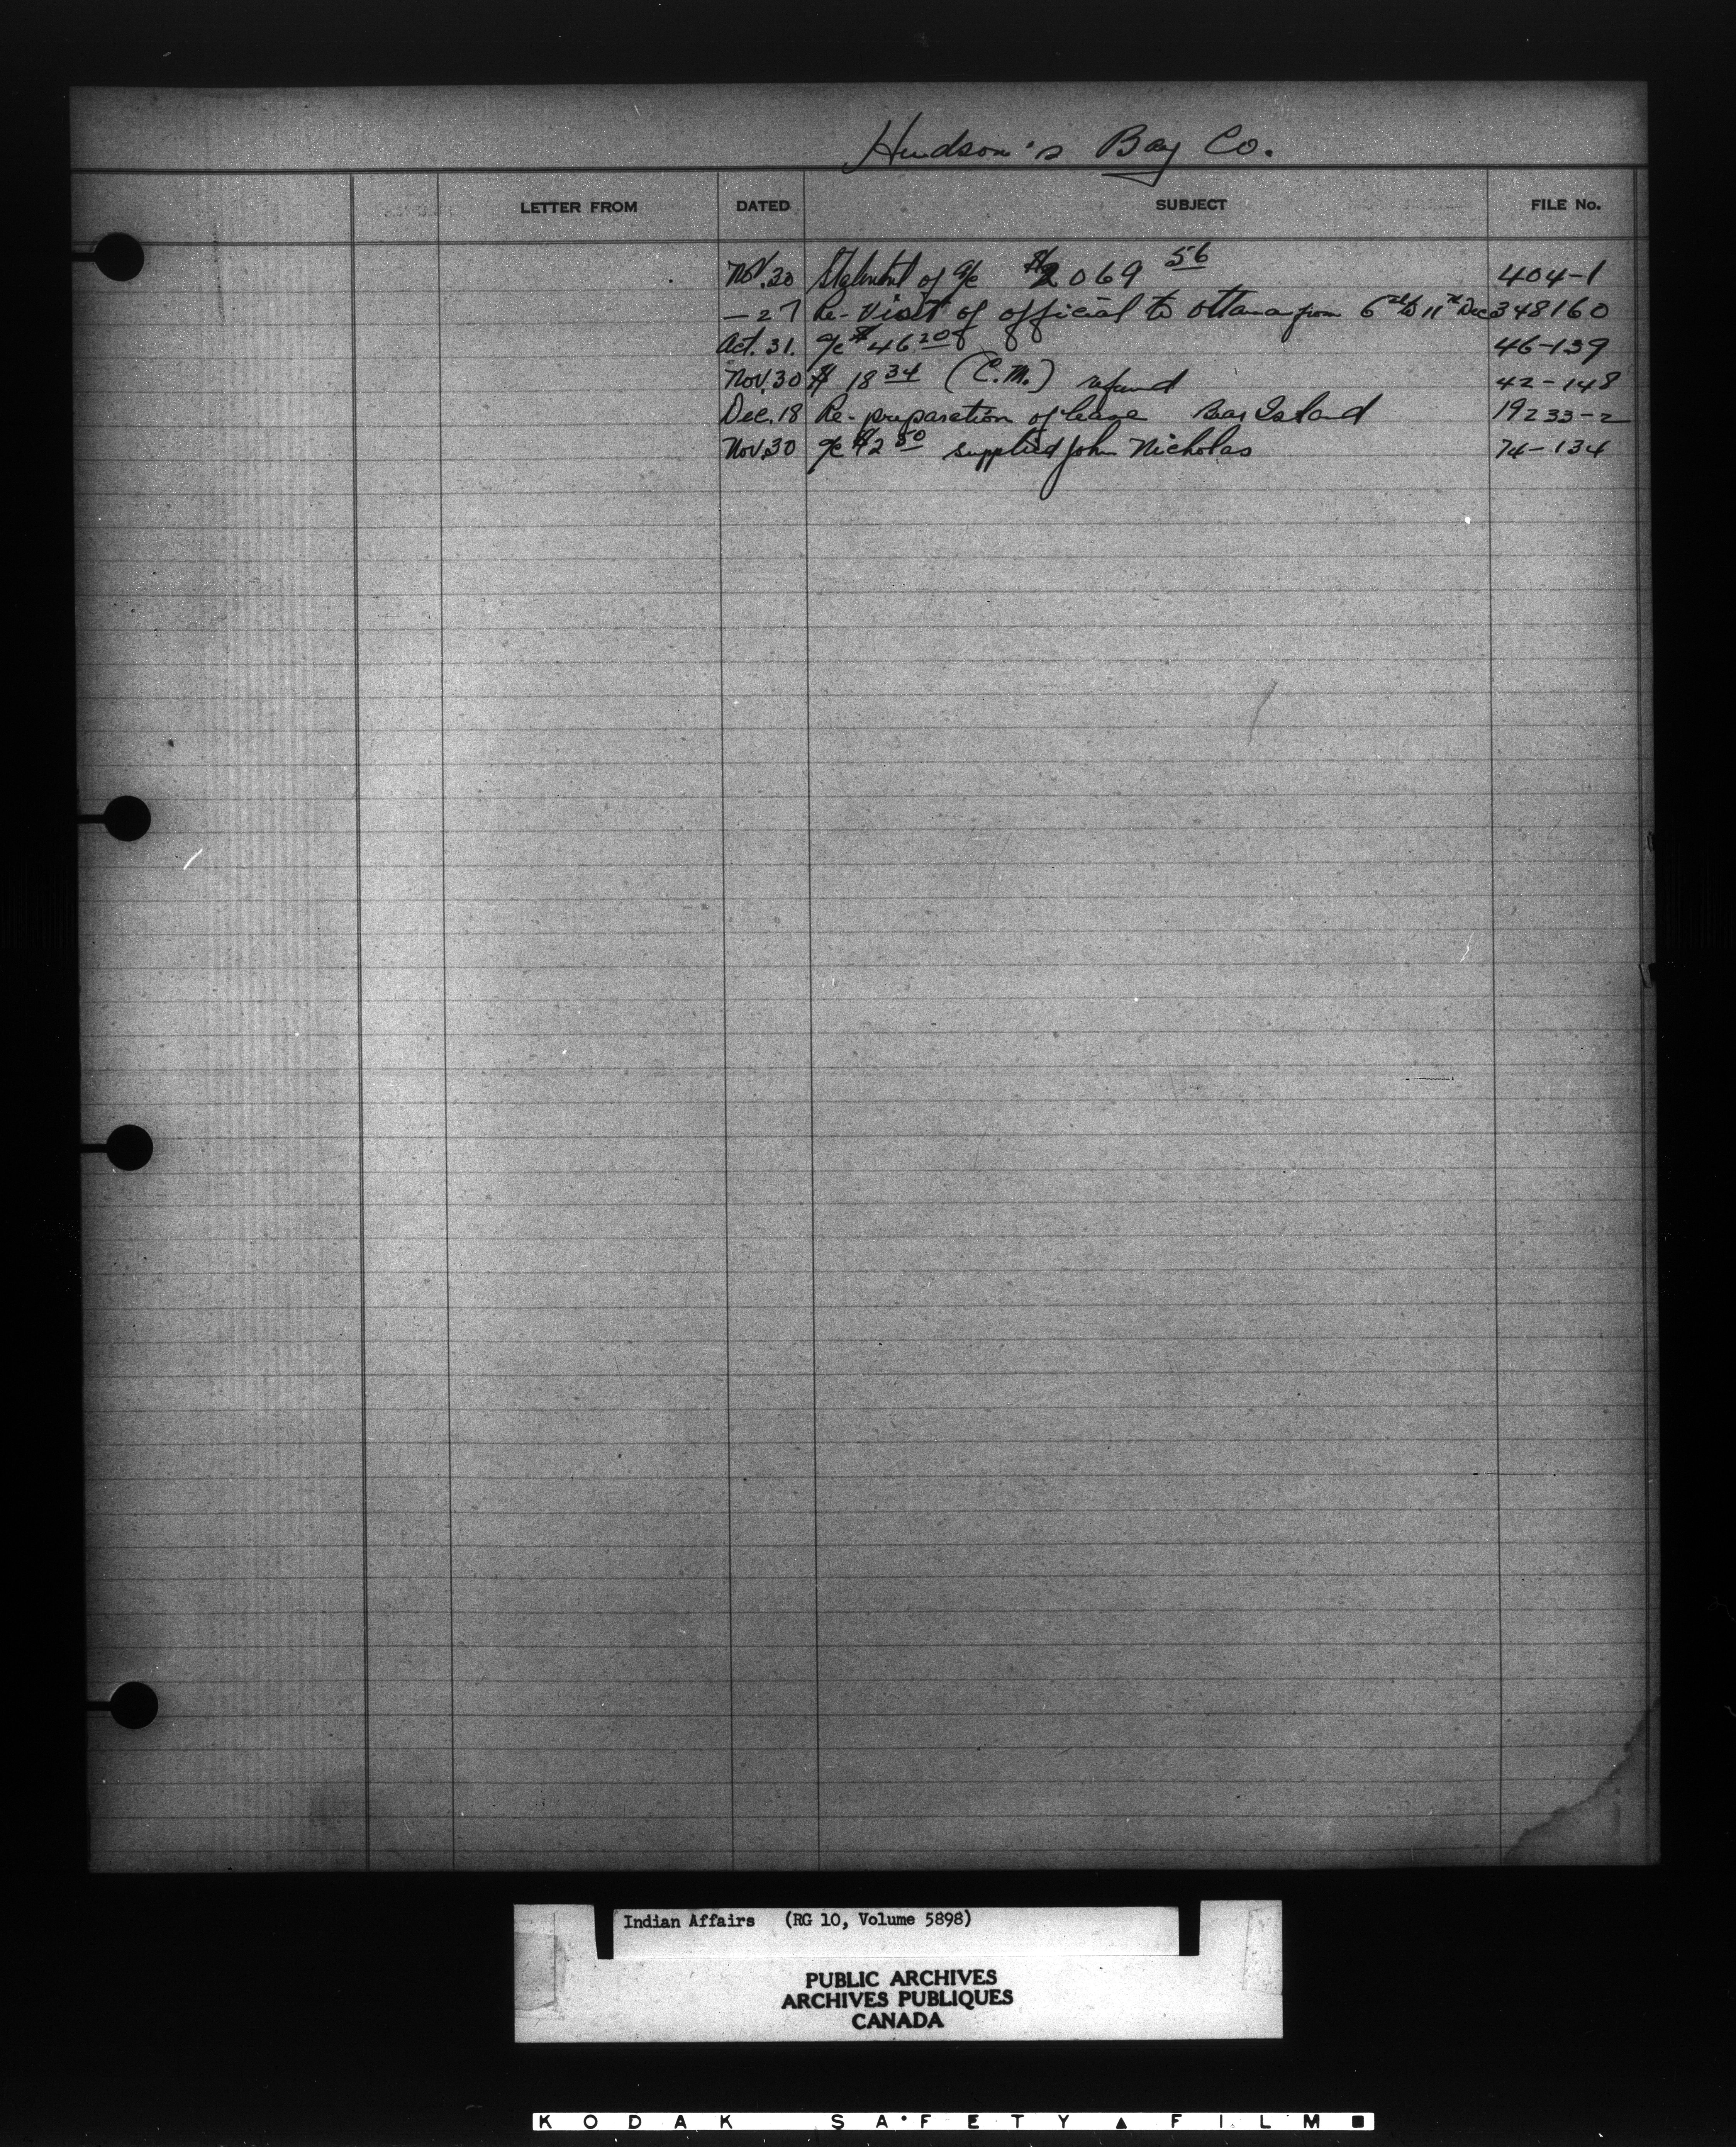 Hudson's Bay Co.
LETTER FROM DATED SUBJECT FILE No.
Nov. 30 Statement of a/c $2069 56 404-1
— 27 Re- Visit of official to Ottawa from 6th to 11th Dec 348160
Oct. 31. a/c $46 20 46-139
Nov. 30 $ 18 34 (C.M.) refund 42-148
Dec. 18 Re- preparation of lease Bear Island 19233-2
Nov. 30 a/c $2 50 supplied John Nicholas 74-134
Indian Affairs (RG 10, Volume 5898)
PUBLIC ARCHIVES
ARCHIVES PUBLIQUES
CANADA
KODAK SAFETY ▲ FILM ■